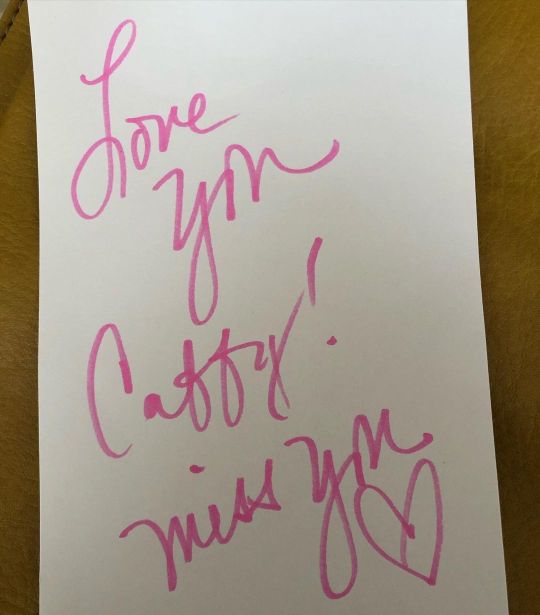 Love
You
Caffy!
miss you